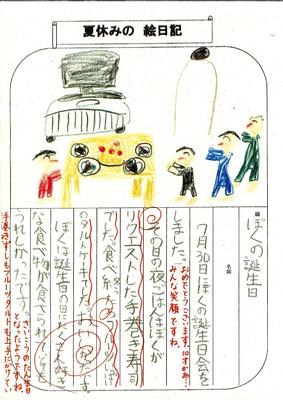 夏休みの 絵日記
題 ぼくの誕生日
名前
7月30日にぼくの誕生日会を
しました。
おめでとうございます。10才かあ…
みんな笑顔ですね。
その日の夜ごはんはぼくが
リクエストした手巻き寿司
でした。食べ終
のタルトケーキ
ぼくは誕生日の日にたくさん好き
な食べ物が食べられてとても
うれしかったです。
さいこうのたん生日
となったようですね。
手巻きずしもフルーツタルトも上手にかけてい